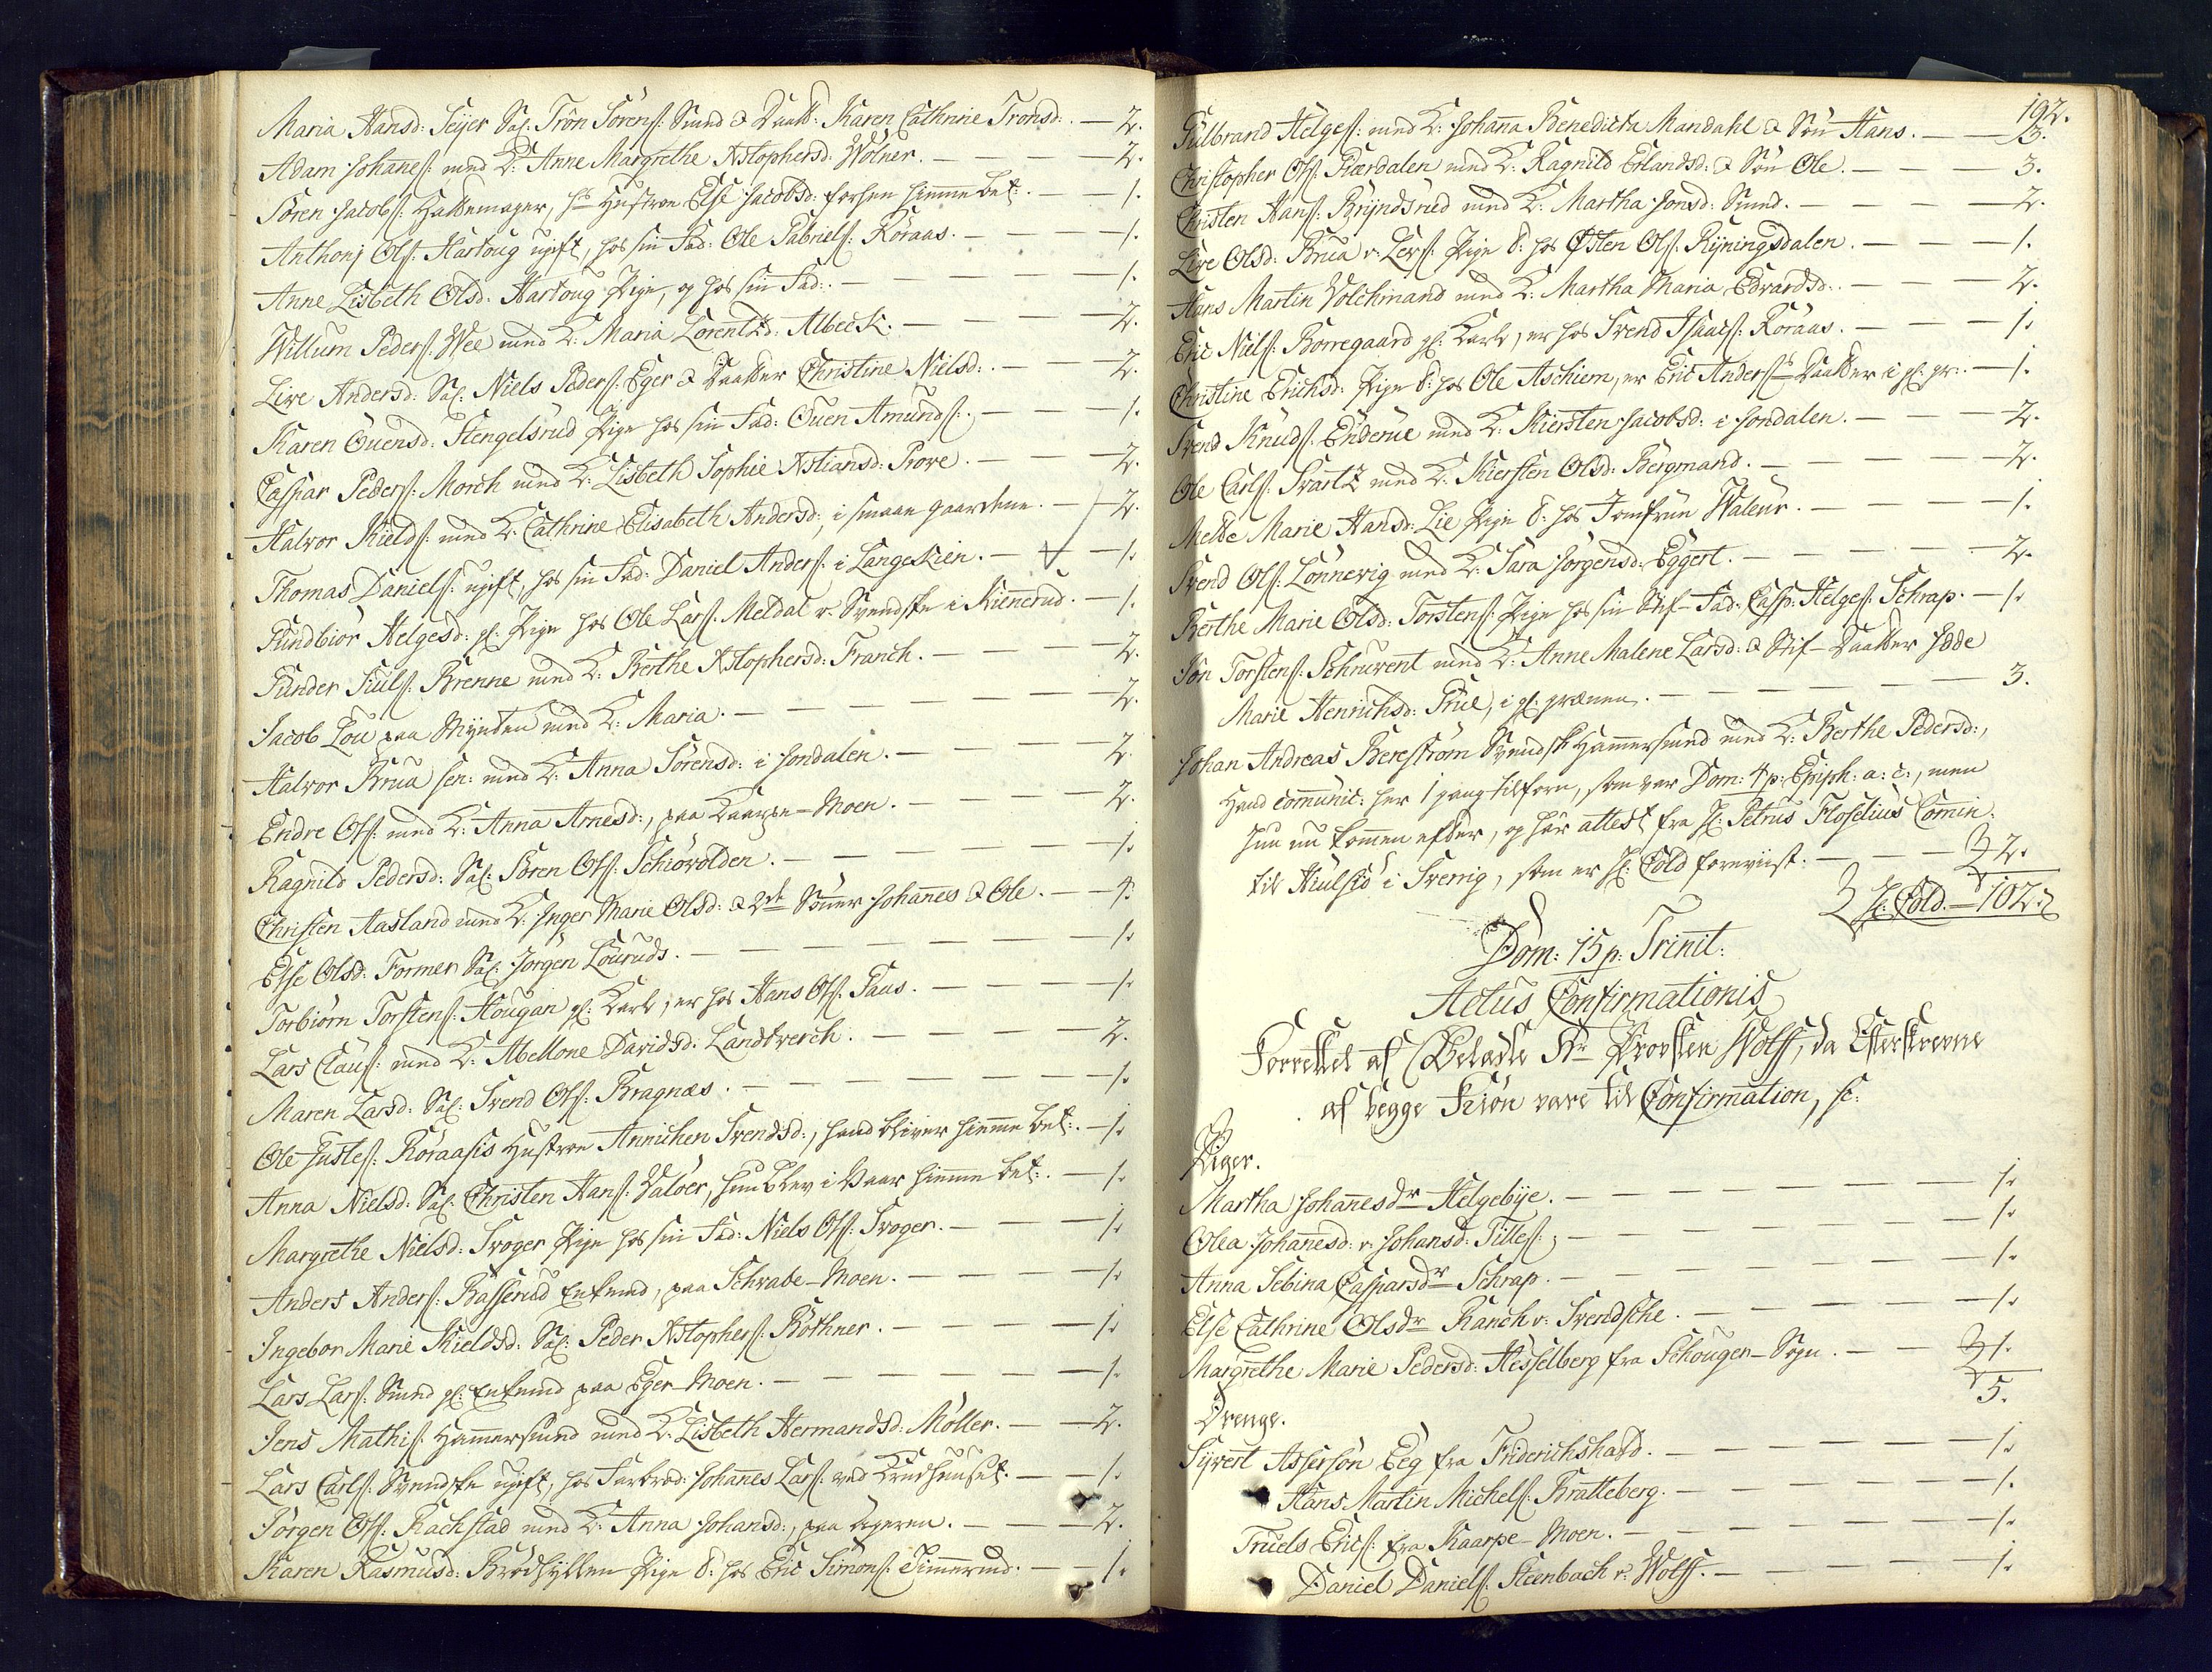 Maria Hansd: Seyer Sal: Tron Sörens: Smed & Daatt: Karen Cathrine Tronsd:. — 2.
Adam Johanes: med K: Anne Margrethe Xstophersd: Wölner. — 2.
Sören Jacobs: Hattemager, hs Hustroe Else Jacobsd: forhen hiemme bet:. — 1.
Anthonj Ols: Hartoug ugift, hos sin Fad: Ole Gabriels: Röraas. — 1.
Anne Lisbeth Olsd: Hartoug Pige, og hos sin Fad:. — 1.
Willum Peders: Wee med K: Maria Lorentzd: Albeck. — 2.
Live Andersd: Sal: Niels Peders: Eger & Daatter Christine Nielsd:. — 2.
Karen Ouensd: Hengelsrud Pige hos sin Fad: Ouen Amunds:. — 1.
Caspar Peders: Morch med K: Lisbeth Sophie Xstiansd: Prove. — 2.
Halvor Kields: med K: Cathrine Elisabeth Andersd:, i smaae gaardene. — 2.
Thomas Daniels: ugift, hos sin Fad: Daniel Anders: i Langeskien. — 1.
Gundbiör Helgesd: gl: Pige hos Ole Lars: Meldal v: Svendske i Kiennerud. — 1.
Gunder Juls: Brenne med K: Berthe Xstophersd: Franch. — 2.
Jacob Lou paa Mynten med K: Maria. — 2.
Halvor Brua sen: med K: Anna Sörensd: i Jondalen. — 2.
Endre Ols: med K: Anna Arnesd:, paa Kaarpe-Moen. — 2.
Ragnild Pedersd: Sal: Sören Ols: Schiövolden. — 1.
Christen Aasland med K: Inger Marie Olsd: & 2de Sönner Johannes & Ole. — 4.
Else Olsd: Former Sal: Jörgen Louruds. — 1.
Torbiörn Torstens: Hougan gl: Karl, er hos Hans Ols: Paus. — 1.
Lars Claus: med K: Abellone Davidsd: Landtverch. — 2.
Maren Larsd: Sal: Svend Ols: Bragnæs. — 1.
Ole Justes: Röraasis Hustroe Annichen Svendsd:, hand bliver hiemme bet:. — 1.
Anna Nielsd: Sal: Christen Hans: Valöer, hun blev i Vaar hiemme bet:. — 1.
Margrethe Nielsd: Svoger Pige hos sin Fad: Niels Ols: Svoger. — 1.
Anders Anders: Basserud Enkemd, paa Schrabe-Moen. — 1.
Ingebor Marie Kieldsd: Sal: Peder Xstophers: Böthner. — 1.
Lars Lars: Smed gl: Enkemd paa Eger-Moen. — 1.
Jens Mathis: Hammersmed med K: Lisbeth Hermandsd: Möller. — 2.
Lars Carls: Svendske ugift, hos Farbrod: Johannes Lars: ved Krudhuuset. — 1.
Jörgen Ols: Rachstad med K: Anna Johansd:, paa Ageren. — 2.
Karen Rasmusd: Brödhyllen Pige t: hos Eric Simons: Timmermd. — 1.
192.
Gulbrand Helges: med K: Johana Benedicta Mandahl & Sön Hans. — 3.
Christopher Ols: Fiærdalen med K: Ragnild Erlandsd: & Sön Ole. — 3.
Christen Hans: Bryndsrud med K: Martha Jonsd: Smed. — 2.
Live Olsd: Brua v: Lers: Pige t: hos Østen Ols: Ryningsdalen. — 1.
Hans Martin Volchmand med K: Martha Maria Edvardsd:. — 2.
Eric Niels: Borregaard gl: Karl, er hos Svend Isaacs: Röraas. — 1.
Christine Erichsd: Pige t: hos Ole Aschiem, er Eric Anders: Daatter i gl: gr:. — 1.
Svend Knuds: Enderue med K: Kiersten Jacobsd: i Jondalen. — 2.
Ole Carls: Svartz med K: Kiersten Olsd: Bergmand. — 2.
Mette Marie Hansd: Lie Pige t: hos Jomfrue Waleur. — 1.
Svend Ols: Lönnevig med K: Sara Jörgensd: Eggert. — 2.
Berthe Marie Olsd: Torstens: Pige hos sin Stif-Fad: Casp: Helges: Schrap. — 1.
Jon Torstens: Schruvent med K: Anne Malene Larsd: & Stif-Daatter Hedde
Marie Henrichsd: Prue, i gl: grænnen. — 3.
Johan Andreas Berström Svendsk Hammersmed med K: Berthe Pedersd:,
Hand communic: her 1 gang tilforn, som var Dom: 4 p: Epiph: a: c:, men
Hun nu kommen efter, og har attest fra H: Petrus Floselius Comin:
til Hiulsiö i Sverrig, som er H: Cold foreviist. — 2.
H: Cold. — 102.
Dom: 15 p: Trinit:
Actus Confirmationis
Forrettet af Velædle Hr Provsten Wolff, da Efterskrevne
af begge Kiön vare til Confirmation, sc:
Piger.
Martha Johannesdr Helgebye. — 1.
Olea Johannesd: v: Johansd: Tilles:, — 1.
Anna Sebina Caspersdr Schrap. — 1.
Else Cathrine Olsdr Ranch v: Svendsche. — 1.
Margrethe Marie Pedersd: Hesselberg fra Schouger-Sogn. — 1.
5.
Drenge.
Syvert Assersön Eeg fra Friderichshald. — 1.
Hans Martin Michels: Bratteberg. — 1.
Truels Erics: fra Kaarpe-Moen. — 1.
Daniel Daniels: Steenbach v: Wolff. — 1.